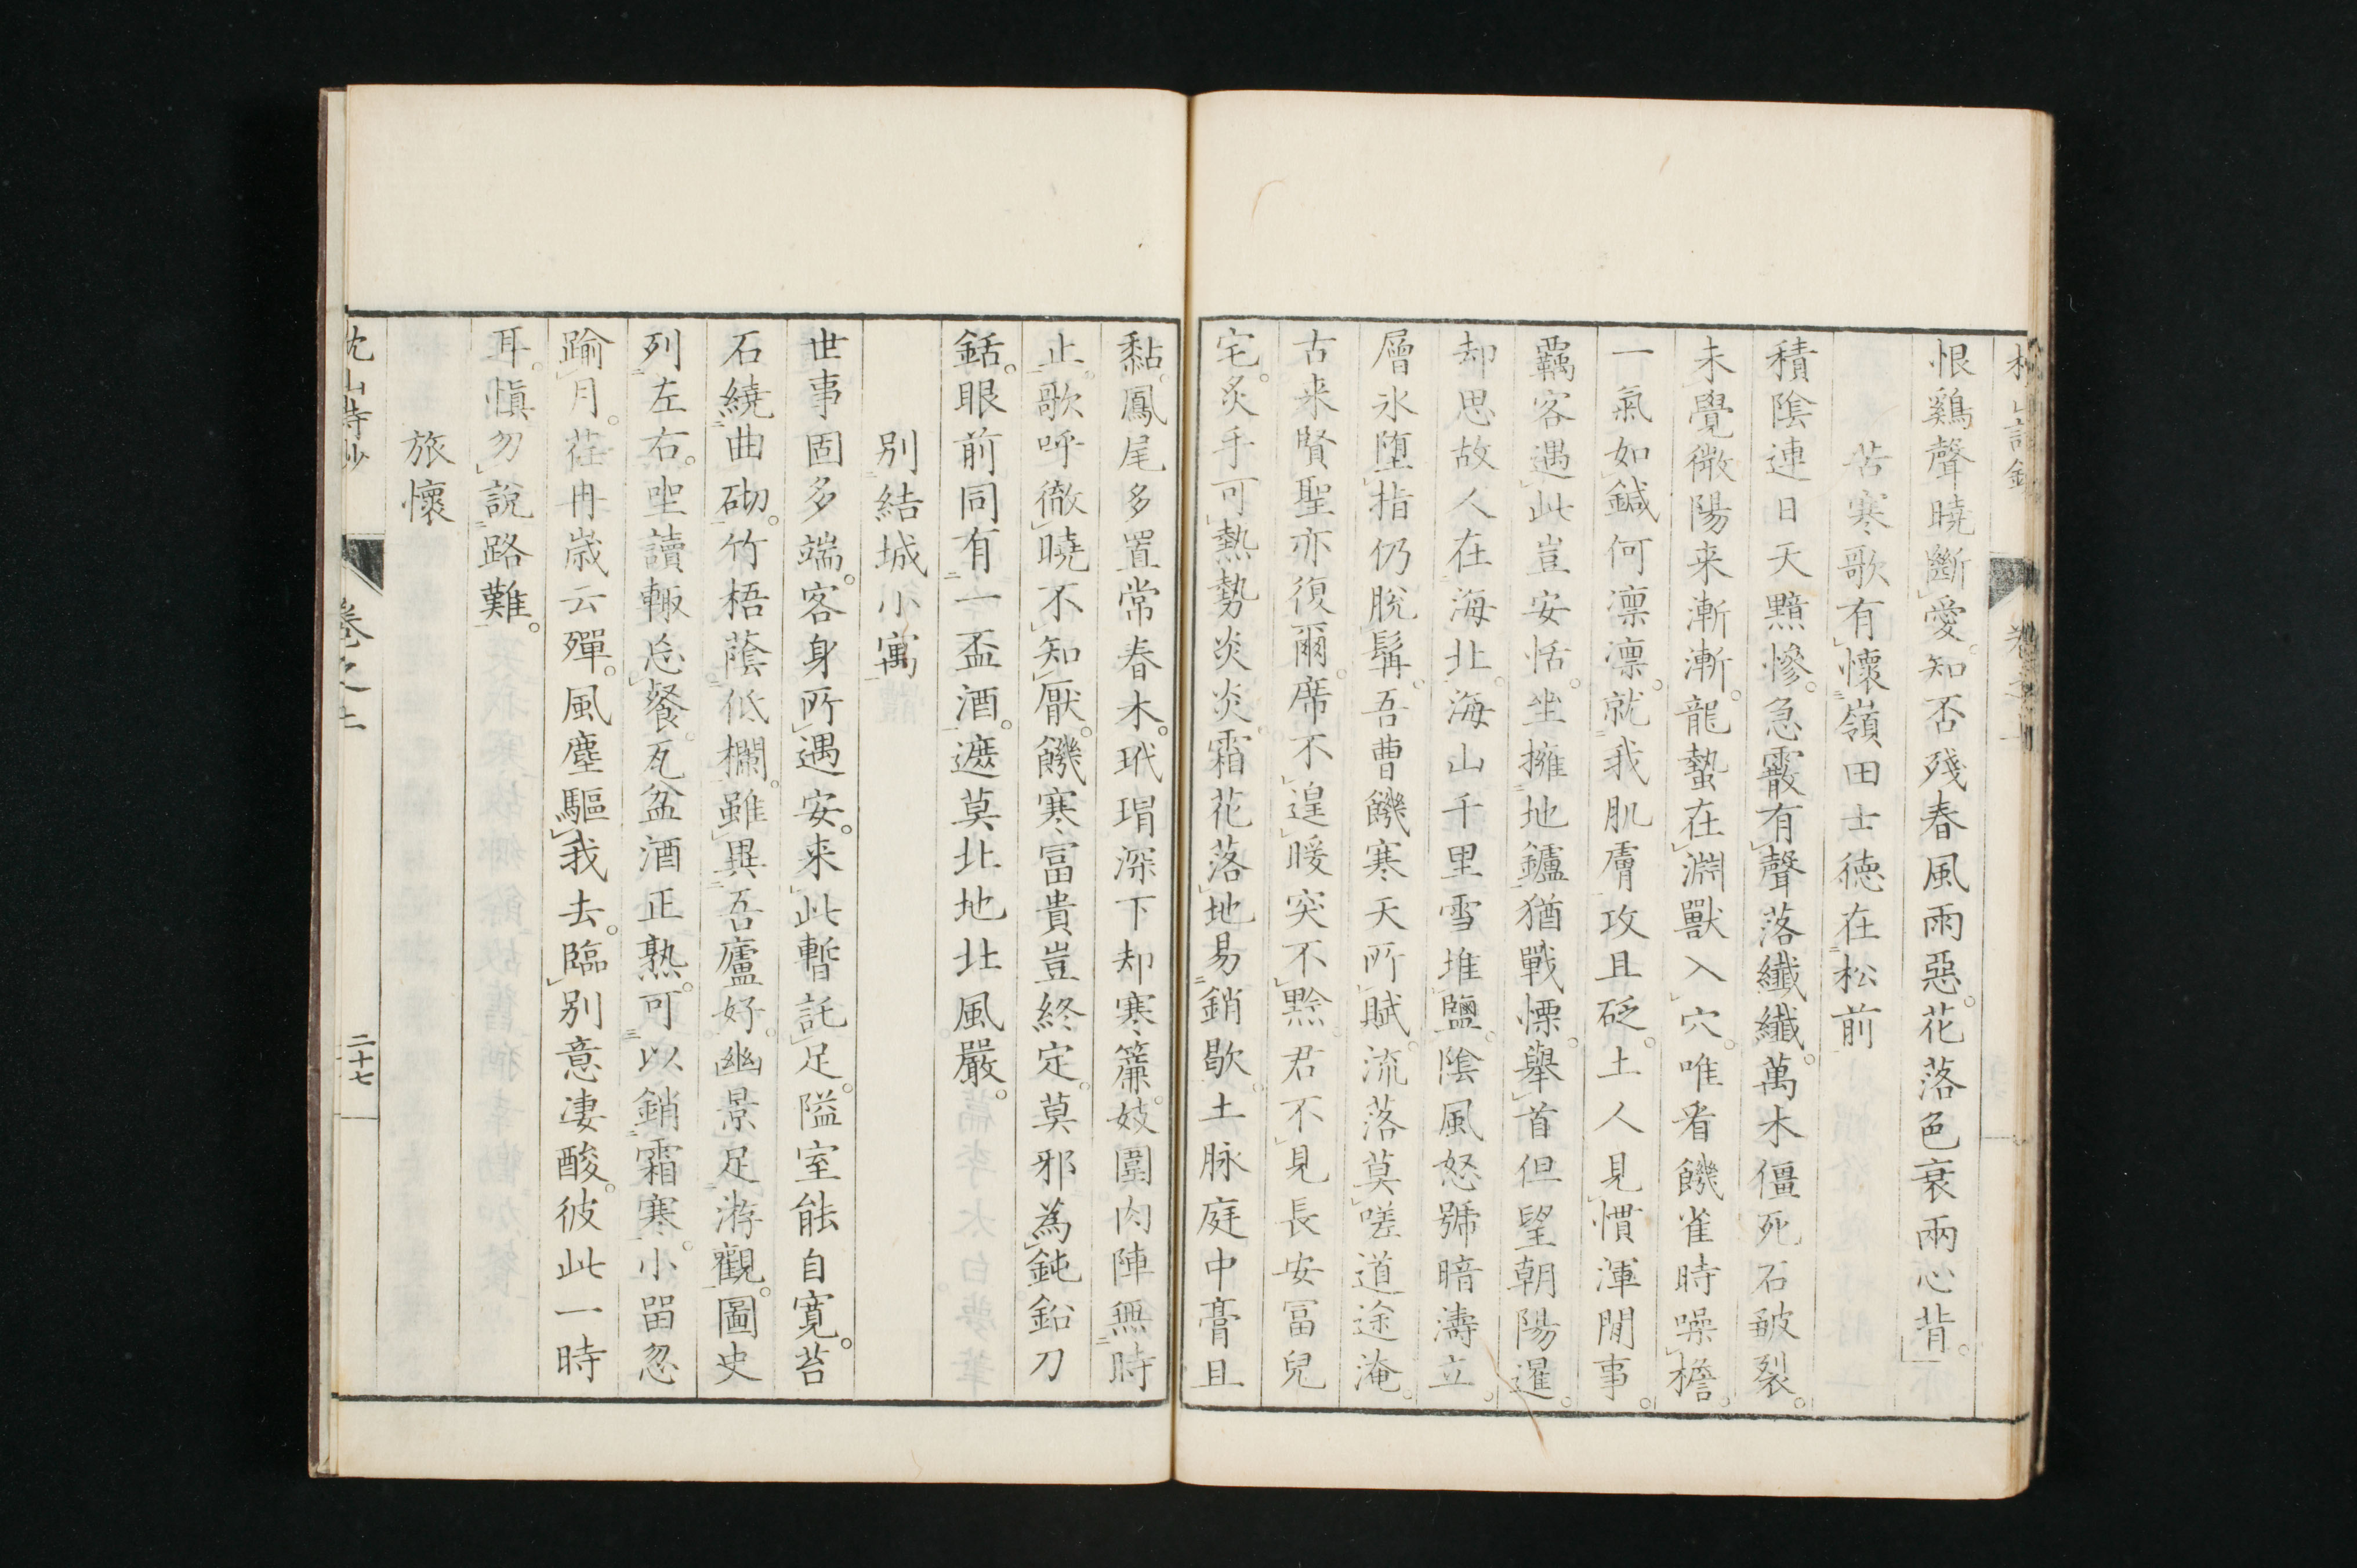 恨鷄聲曉斷愛。知否殘春風雨惡。花落色衰兩心背。
苦寒歌有懷嶺田士德在松前
積陰連日天黯慘。急霰有聲落纖纖。萬木僵死石皴裂。
未覺微陽来漸漸。龍蟄在淵獸入穴。唯看饑雀時噪檐。
一氣如鍼何凛凛。就我肌膚攻且砭。土人見慣渾閒事。
羈客遇此豈安恬。坐擁地鑪猶戰慄。舉首但望朝陽暹。
却思故人在海北。海山千里雪堆鹽。陰風怒號暗濤立。
層氷堕指仍脫髯。吾曹饑寒天所賦。流落莫嗟道途淹。
古来賢聖亦復爾。席不遑暖突不黔。君不見長安冨兒
宅。炙手可熱勢炎炎。霜花落地易銷歇。土脉庭中膏且
黏。鳳尾多置常春木。玳瑁深下却寒簾。妓圍肉陣無時
止。歌呼徹曉不知厭。饑寒冨貴豈終定。莫邪為鈍鉛刀
銛。眼前同有一盃酒。遮莫北地北風嚴。
別結城小寓
世事固多端。客身所遇安。来此暫託足。隘室能自寛。苔
石繞曲砌。竹梧蔭低欄。雖異吾廬好。幽景足游觀。圖史
列左右。坐讀輙忘餐。瓦盆酒正熟。可以銷霜寒。小留忽
踰月。荏冉歳云殫。風塵驅我去。臨別意凄酸。彼此一時
耳。愼勿說路難。
旅懷
枕山詩鈔
卷之上
二十七